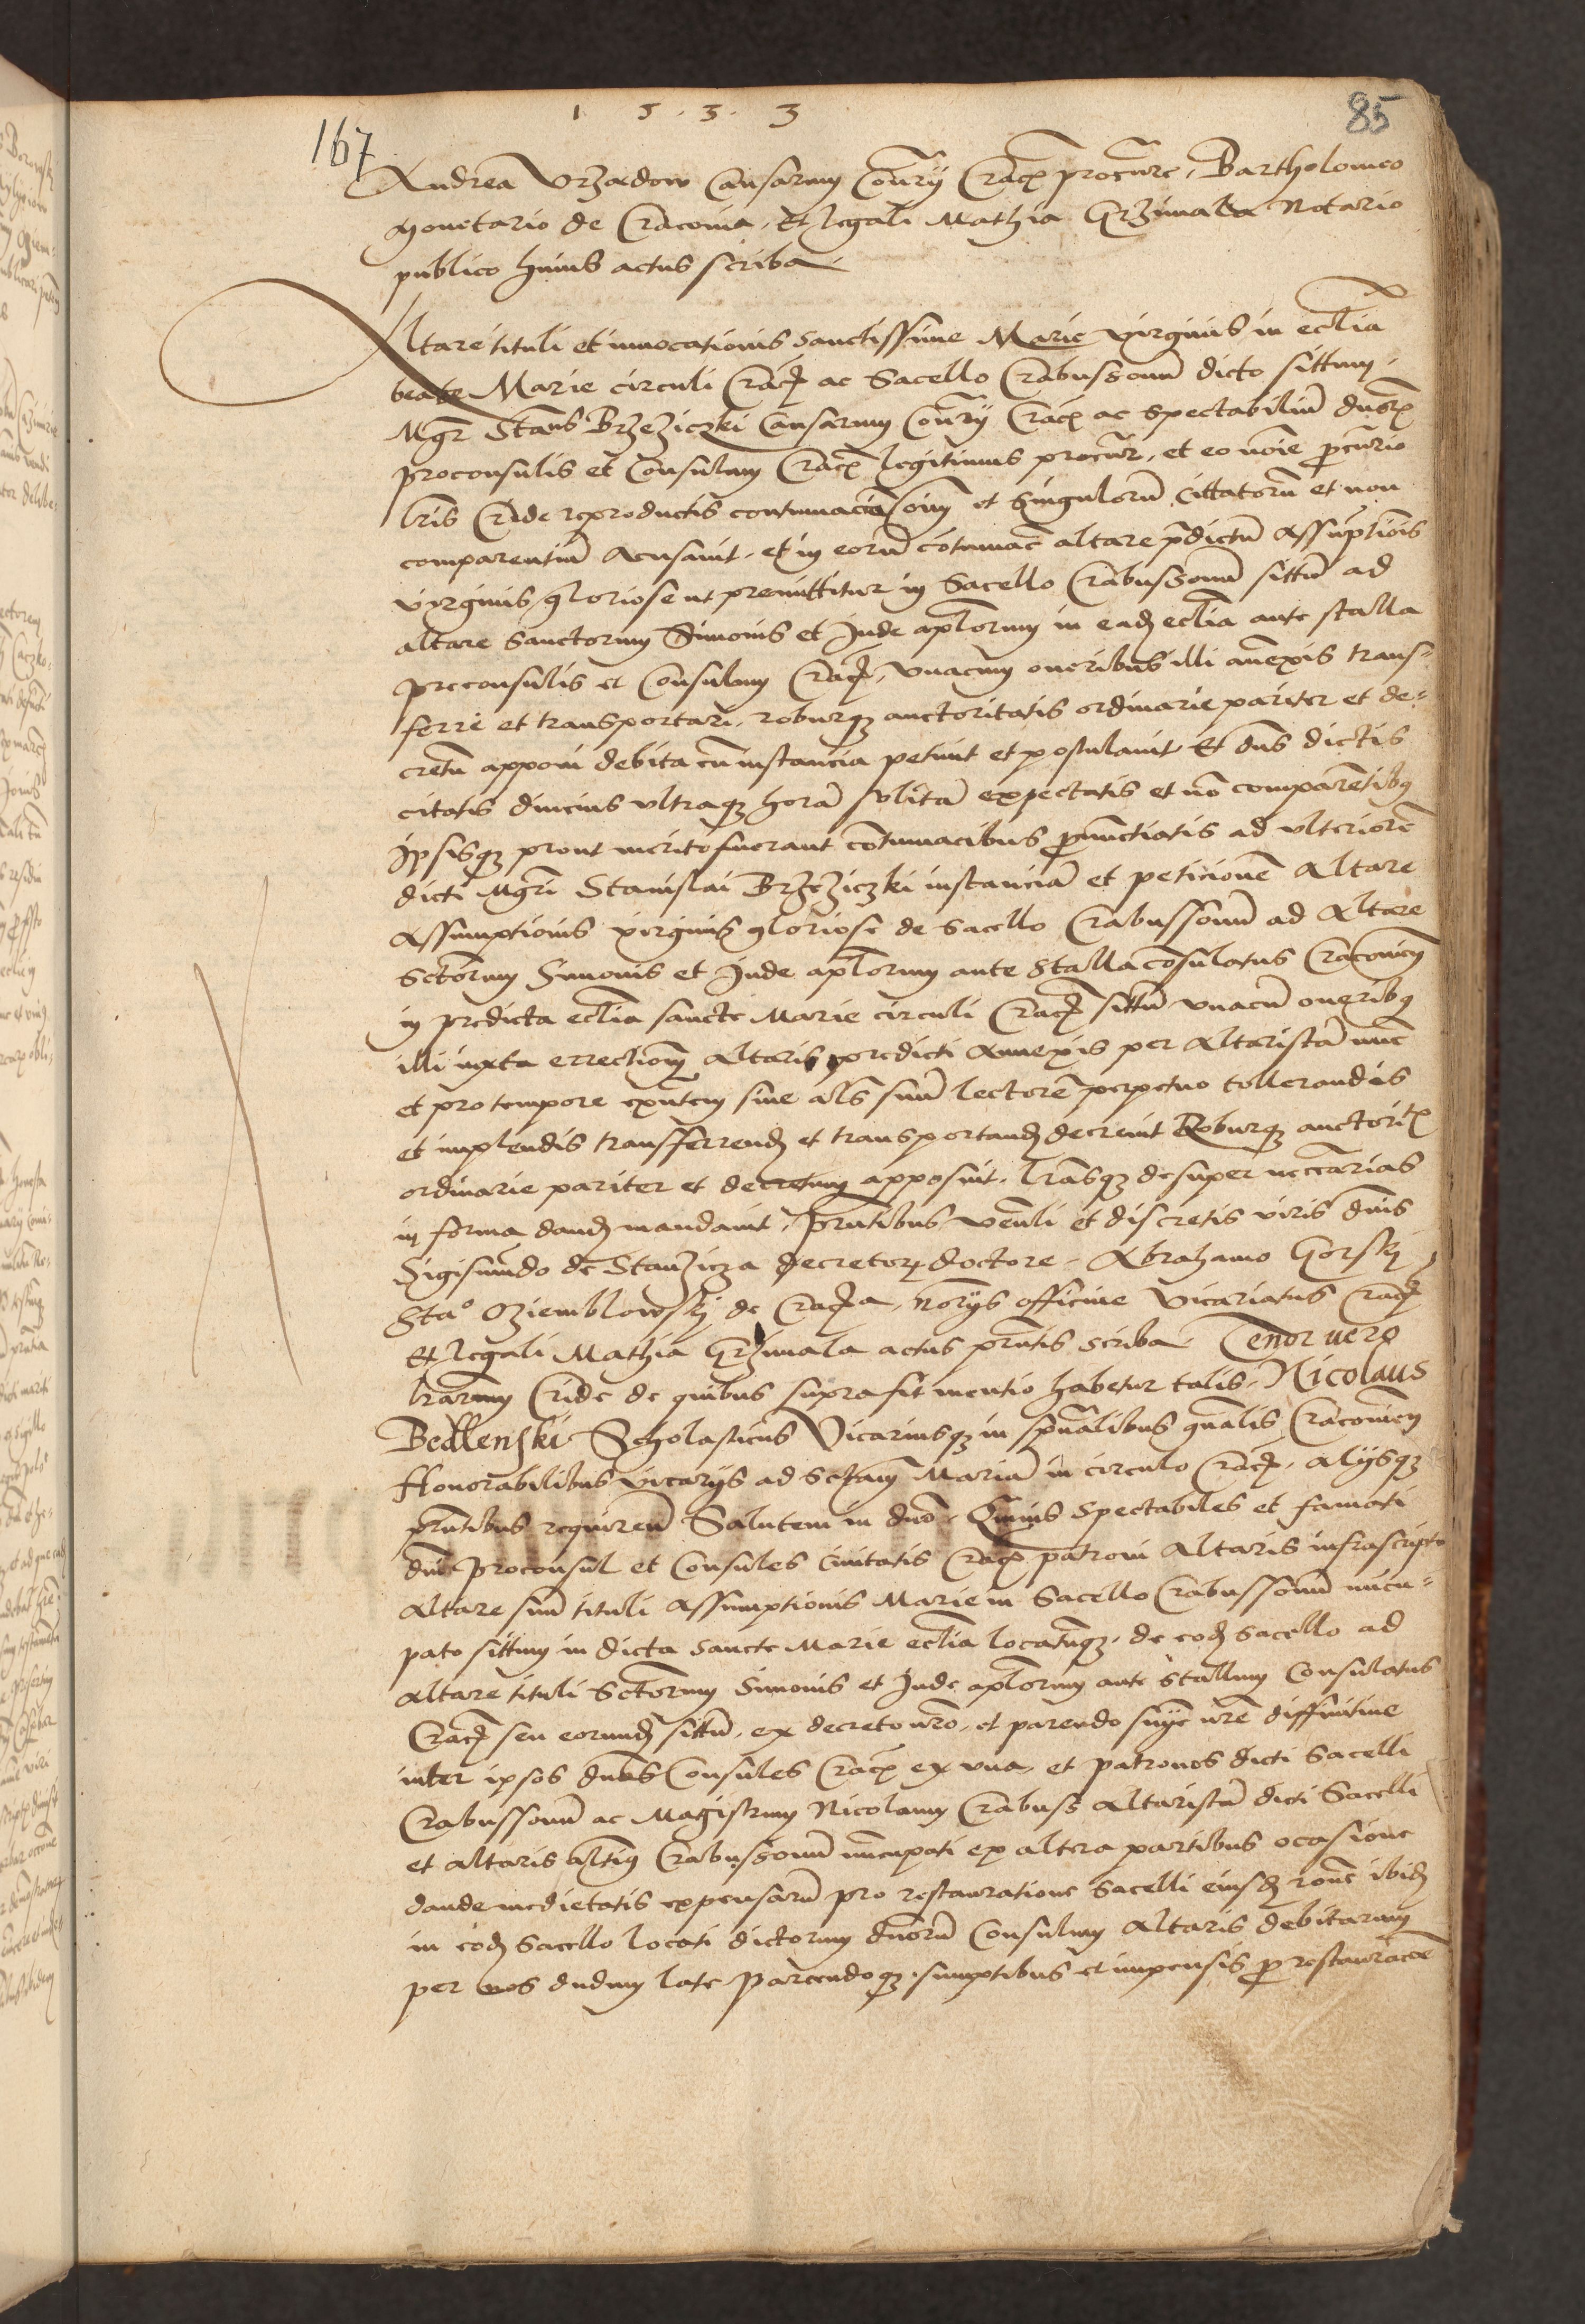 1 5 . 3 . 3
167
85
Andrea Vrzadow Causarum Cõnr̃ij Crac̃ procur̃e, Bartholomeo
Monetario de Cracovia, Et legali Mathia Grzimala Notario
publico huius actus scriba
Altare tituli et invocationis sanctissime Marie virginis in ecl̃ia
beate Marie circuli Crac̃ ac Sacello Crabussoum̃ dicto sittum,
Mgr̃ Stanis Brzeziczki Causarum Conr̃ij Crac̃ ac spectabiliũ dn̄or̃
proconsulis et Consulum Crac̃ legitimus procur̃, et eo nõie
lr̃is Cride reproductis contumaciã oĩm et singulorũ cittatorũ et non
comparentiũ acusavit, et in eorũ cõtumac̃ altare p̃dictũ Assũptiõis
virginis gloriose ut premittitur in Sacello Crabussonũ sittũ ad
altare sanctorum Simonis et Jude apl̃orum in ead̃ ecl̃ia ante stalla
preconsulis et Consulum Crac̃, vnacum oneribus illi anexis trans-
ferri et transportari, roburqz auctoritatis ordinarie pariter et de-
cretũ apponi debita cũ instancia petiuit et postulauit Et dñs dictis
citatis diucius vltraqz horã solitã expectatis et nõ comparẽtibq
Ipsisqz prout merito fuerant cõtumacibus p̃nũctiatis ad vlteriorẽ
dicti Mgr̃i Stanislai Brzeziczki instanciã et peticionẽ Altare
Assumptionis virginis gloriose de Sacello Crabussonũ ad Altare
Sctõrum Simonis et Jude apl̃orum ante Stalla cõsulatus Cracovien̄
in predicta ecl̃ia sancte Marie circuli Crac̃ sittũ vnacũ oneribq
illi iuxta errectionem altaris predicti annexis per altaristã nũc
et pro tempore exñtem siue al̃s suũ lectorẽ perpetuo tollerandis
et implendis transfferrend̃ et transportand̃ decreuit Roburqz auctorit̃
ordinarie pariter et decretum apposuit, lr̃asqz desuper neccãrias
in forma dand̃ mandauit, Pñtibus veñli et discretis viris dñis
Sigismũdo de Stanzicza decretor̃ doctore, Abrahamo Gorskj
Sta° Oziemblowskj de Crac̃a, nor̃ijs officine Vicariatus Crac̃
Et legali Mathia Grzimala actus pñtis scriba Tenor vero
lr̃arum Cride de quibus supra fit mentio habetur talis, Nicolaus
Bedlenski Scholasticus Vicariusqz in spũalibus gñalis Cracovien̄
Honorabilibus vicarijs ad Sctam Mariã in circulo Crac̃, alijsqz
pñtibus requirend̃ Salutem in dño, Quiuis spectabiles et famati
dñi Proconsul et Consules Ciuitatis Crac̃ patroni Altaris infrascripti
Altare suũ tituli Assumptionis Marie in Sacello Crabussonũ nũcu-
pato sittum in dicta sancte Marie ecl̃ia locatũqz, de eod̃ sacello ad
altare tituli Sctõrum Simonis et Jude apl̃orum ante Stallum Consulatus
Crac̃ seu eorund̃ sittũ, ex decreto nr̃o, et parendo snĩe nr̃e diffinitiue
inter ipsos dños Consules Crac̃ ex vna, et patronos dicti Sacelli
Crabussonũ ac Magistrum Nicolaum Crabuss altaristã dicti Sacelli
et altaris Crabussonũ nuncupati ex altera partibus ocasione
dande medietatis expensarũ pro restauratione Sacelli eiusd̃ rõne ibid̃
in eod̃ Sacello locati dictorum dñorũ Consulum Altaris debitarum
per nos dudum late parcendoqz sumptibus et impensis p̃ restauracõe